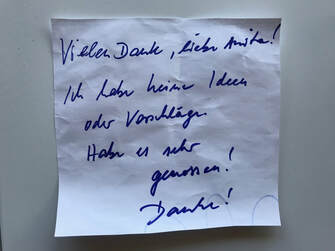 Vielen Dank, liebe Anita!
Ich habe keine Ideen
oder Vorschläge.
Habe es sehr
genossen!
Danke!